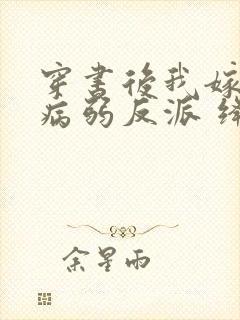 穿書後我嫁
病弱反派
余星雨